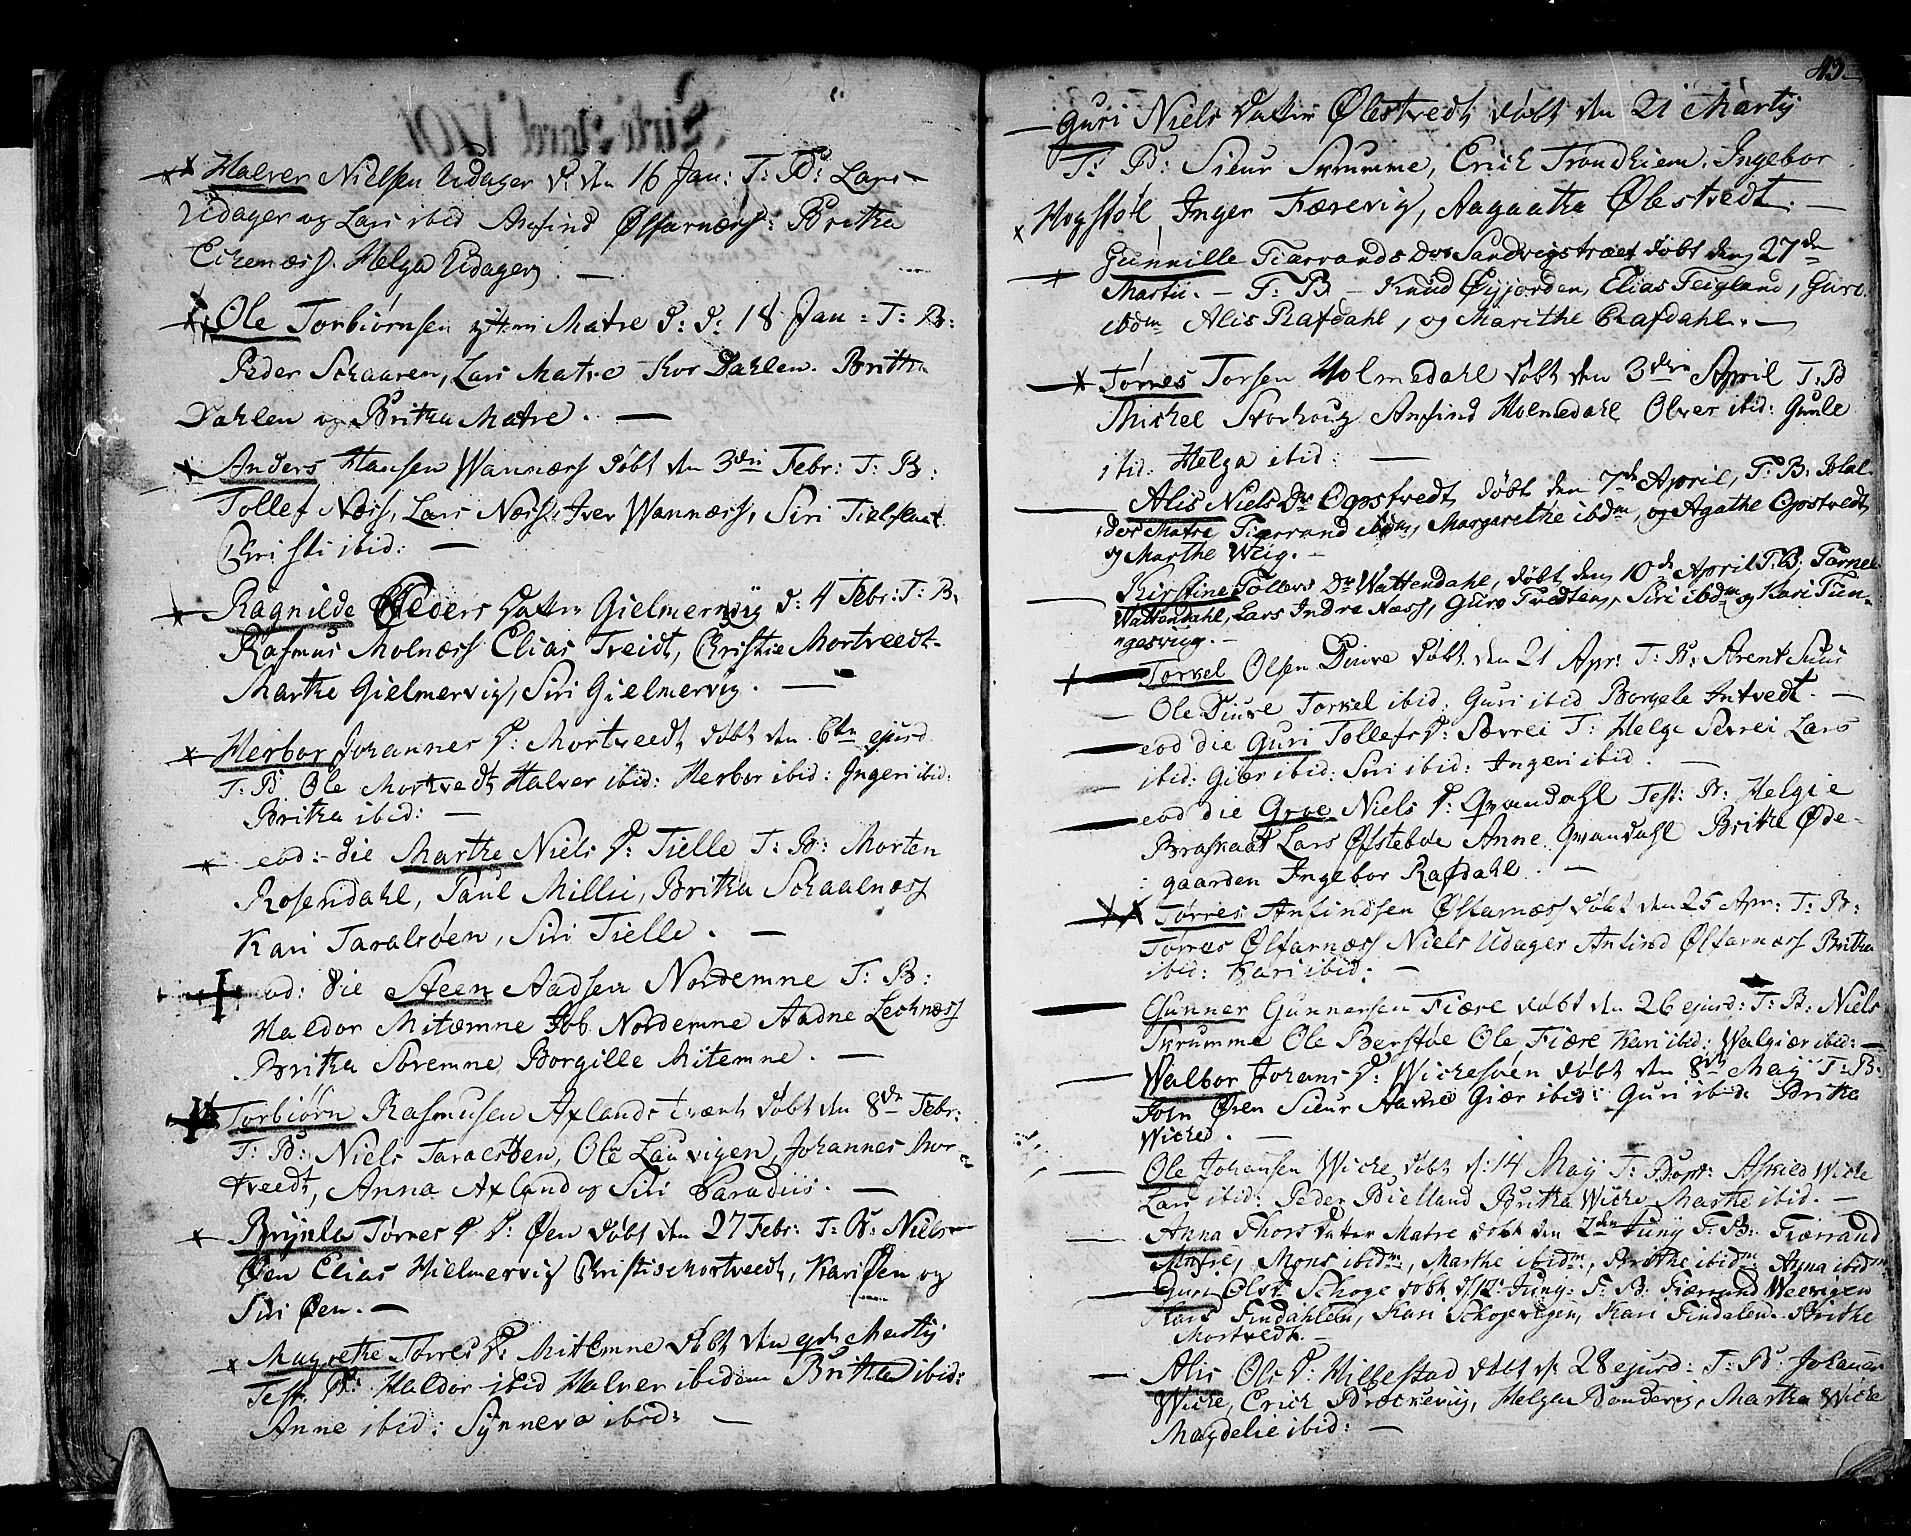 Halver Nielsen Udager d: den 16 Jan: T: B: Lars
Udager og Lars ibid Anfind Ølfarnæss: Britha
Eikenæss. Helga Udager.
Ole Torbiørnsen Matre d: d: 18 Jan: T: B:
Peder Schaaren, Lars Matre Thor Dahlen. Britha
Dahlen og Britha Matre.
Anders Hansen Wannæss døbt den 3die Febr: T: B:
Tollef Næss, Lars Næss, Iver Wannæss, Siri
Christi ibid:
Ragnilde Peders Datter Gielmervig d: 4 Febr: T: B:
Rasmus Molnæss Elias Tveidt, Christie Mortveedt
Martha Gielmervig, Siri Gielmervig.
Herbor Johannes D: Mortveedt døbt den 6te ejusd
T: B Ole Mortvedt Halver ibid: Herbor ibid: Ingeri ibid:
Britha ibid:
eod: die Martha Niels D: Tielle T: B: Morten
Rosendahl, Paul Millie, Britha Schaalnæss
Kari Taralsøen, Siri Tielle.
eod: die Steen Aadsen Nordemne T: B:
Haldor Mitæmne Job Nordemne Aadne Leknæss
Britha Søremne Borgille Mitemne.
Torbiørn Rasmusen Axlandstvæt døbt den 8de Febr:
T: B: Niels Taraldsøen, Ole Lauvigen, Johannes Mor-
tveedt, Anna Axland og Siri Paradiis.
Brynla Tørres D: Øen døbt den 27 Febr: T: B: Niels
Øen Elias Hielmervig Christi Mortveedt, Kari Øen og
Siri Øen.
Magrethe Torres D: Mitemne døbt den Martij
Test: B: Haldor ibid Halver ibidem Britha ibid:
Anne ibid: Synneva ibid:
43
Guri Niels Datter Ølestvedt døbt den 21 Martij
T: B: Sieur Skrumme, Erich Trondhiem. Ingebor
Hogstøl, Inger Færevig, Aagaatha Ølestvedt.
Gunnille Tiærands Dr Sandvigstræet døbt den 27de
Martii. - T: B - Knud Øyjorden, Elias Teigland, Guro
ibdm Alis Rafdahl, og Marithe Rafdahl.
Tørres Torsen Holmedahl døbt den 3die April T: B
Michel Storhoug Anfind Holmedahl Olver ibid: Gunle
ibid: Helga ibid:
Alis Niels Dr Opstvedt døbt den 7de April, T: B: Hal-
dor Matre Tiærrand ibdm, Margarethe ibdm, og Agathe Opstvedt
og Marthe Weig.
Kirstine Tollevs Dr Wattendahl, døbt den 10de April T: B: Torkel
Wattendahl, Lars Indre Næss, Guro Tvedten, Siri ibdm og Kari Tun-
gesviig.
Torkel Olsen Diuve døbt den 21 Apr: T: B: Arent
Ole Diuve Torkel ibid: Guri ibid Borgele Intvedt.
eod die Guri Tollefs D: Sævrei T: Helge Sevrei Lars
ibid: Giær ibid: Siri ibid: Ingeri ibid.
eod die Groe Niels D: Qvandahl Test: B: Helgie
Braskaat Lars Øfstebøe Anne Qvandahl Britha Øde-
gaarden Ingebor Rafdahl.
Tørres Anfindsen Ølfarnæss døbt den 25 Apr: T: B:
Tørres Ølfarnæss Niels Udager Anfind Ølfarnæss Britha
ibid: Kari ibid:
Gunner Gunnersen Fiære døbt den 26 ejusd: T: B: Niels
Skrumme Ole Berstøe Ole Fiære Kari ibid: Walgiær ibid:
Walbor Johans D: Wichesøen døbt den 8de Maij T: B:
John Øren Sieur Giær ibid: Guri ibid: Britha
Wiche.
Ole Johansen Wiche døbt d: 14 Maij T: Bapt: Askied Wiche
Lars ibid: Peder Bielland Britha Wiche Martha ibid.
Anna Thors Dater Matre døbt den 2den Junij T: B: Tiærrand
Matre, Mons ibidm, Marthe ibidm, Brithe ibidm Anna ibidm
Guri Ols D: Schoge døbt d: 12 Junij: T: B: Tiærrand Weevigen
Lars Findahlen, Kari Schogevigen, Kari Findalen Brithe
Mortvedt.
Alis Ols D: Millestad døbt d: 28 ejusd: T: B: Johannes
Wiche, Erich Bræckeviig, Helga Bondevig, Martha Wiche
Magdelie ibid: